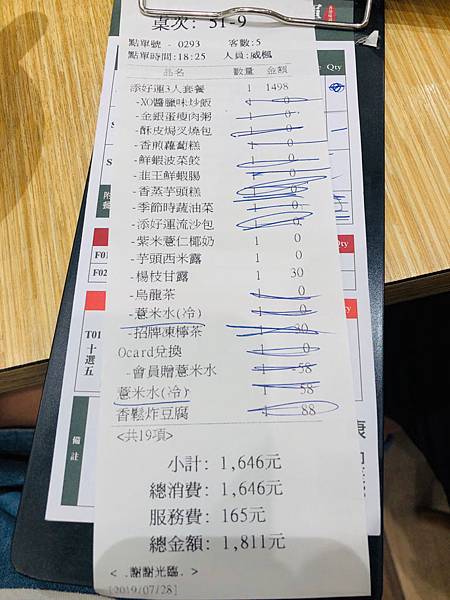 桌次: 51-9
點單號 - 0293 客數:5
點單時間:18:25 人員:威楓
品名 數量 金額
添好運3人套餐 1 1498
-XO醬臘味炒飯 1 0
-金銀蛋瘦肉粥 1 0
-酥皮焗叉燒包 1 0
-香煎蘿蔔糕 1 0
-鮮蝦菠菜餃 1 0
-韭王鮮蝦腸 1 0
-香蒸芋頭糕 1 0
-季節時蔬油菜 1 0
-添好運流沙包 1 0
-紫米薏仁椰奶 1 0
-芋頭西米露 1 0
-楊枝甘露 1 30
-烏龍茶 1 0
-薏米水(冷) 1 0
-招牌凍檸茶 1 30
Ocard兌換 1 0
-會員贈薏米水 1 -58
薏米水(冷) 1 58
香鬆炸豆腐 1 88
<共19項>
小計: 1,646元
總消費: 1,646元
服務費: 165元
總金額: 1,811元
< .謝謝光臨. >
[2019/07/28]
Qty
Qty
F01
F02
Qty
T01
十
選
五
備
註